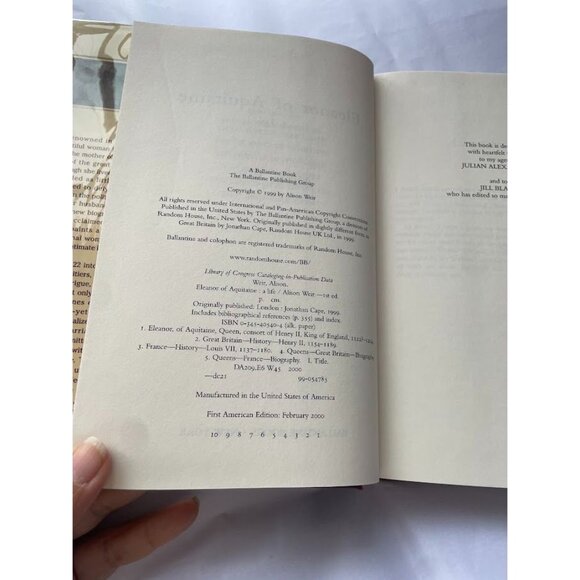 enowned in
tiful woman
he mother of
of the great
gh she live
ded as littl
ed to de
er husban
new biog
cclaimed
aints: a
nal wom
timate
22 int
itiers,
igue,
e am
t-ye
rri
A Ballantine Book
The Ballantine Publishing Group
Copyright © 1999 by Alison Weir
All rights reserved under International and Pan-American Copyright Conventions.
Published in the United States by The Ballantine Publishing Group, a division of
Random House, Inc., New York. Originally published in slightly different form in
Great Britain by Jonathan Cape, Random House UK Ltd., in 1999.
Ballantine and colophon are registered trademarks of Random House, Inc.
www.randomhouse.com/BB/
Library of Congress Cataloging-in-Publication Data
Weir, Alison.
Eleanor of Aquitaine : a life / Alison Weir.—1st ed.
p. cm.
Originally published: London : Jonathan Cape, 1999.
Includes bibliographical references (p. 355) and index.
ISBN 0-345-40540-4 (alk. paper)
1. Eleanor, of Aquitaine, Queen, consort of Henry II, King of England, 1122?-1204.
2. Great Britain—History—Henry II, 1154-1189.
3. France—History—Louis VII, 1137-1180. 4. Queens—Great Britain—Biography.
5. Queens—France—Biography. I. Title.
DA209.E6 W45 2000
—dc21 99-054785
Manufactured in the United States of America
First American Edition: February 2000
10 9 8 7 6 5 4 3 2 1
This book is de
with heartfelt
to my age
JULIAN ALEX
and to
JILL BLA
who has edited so ma